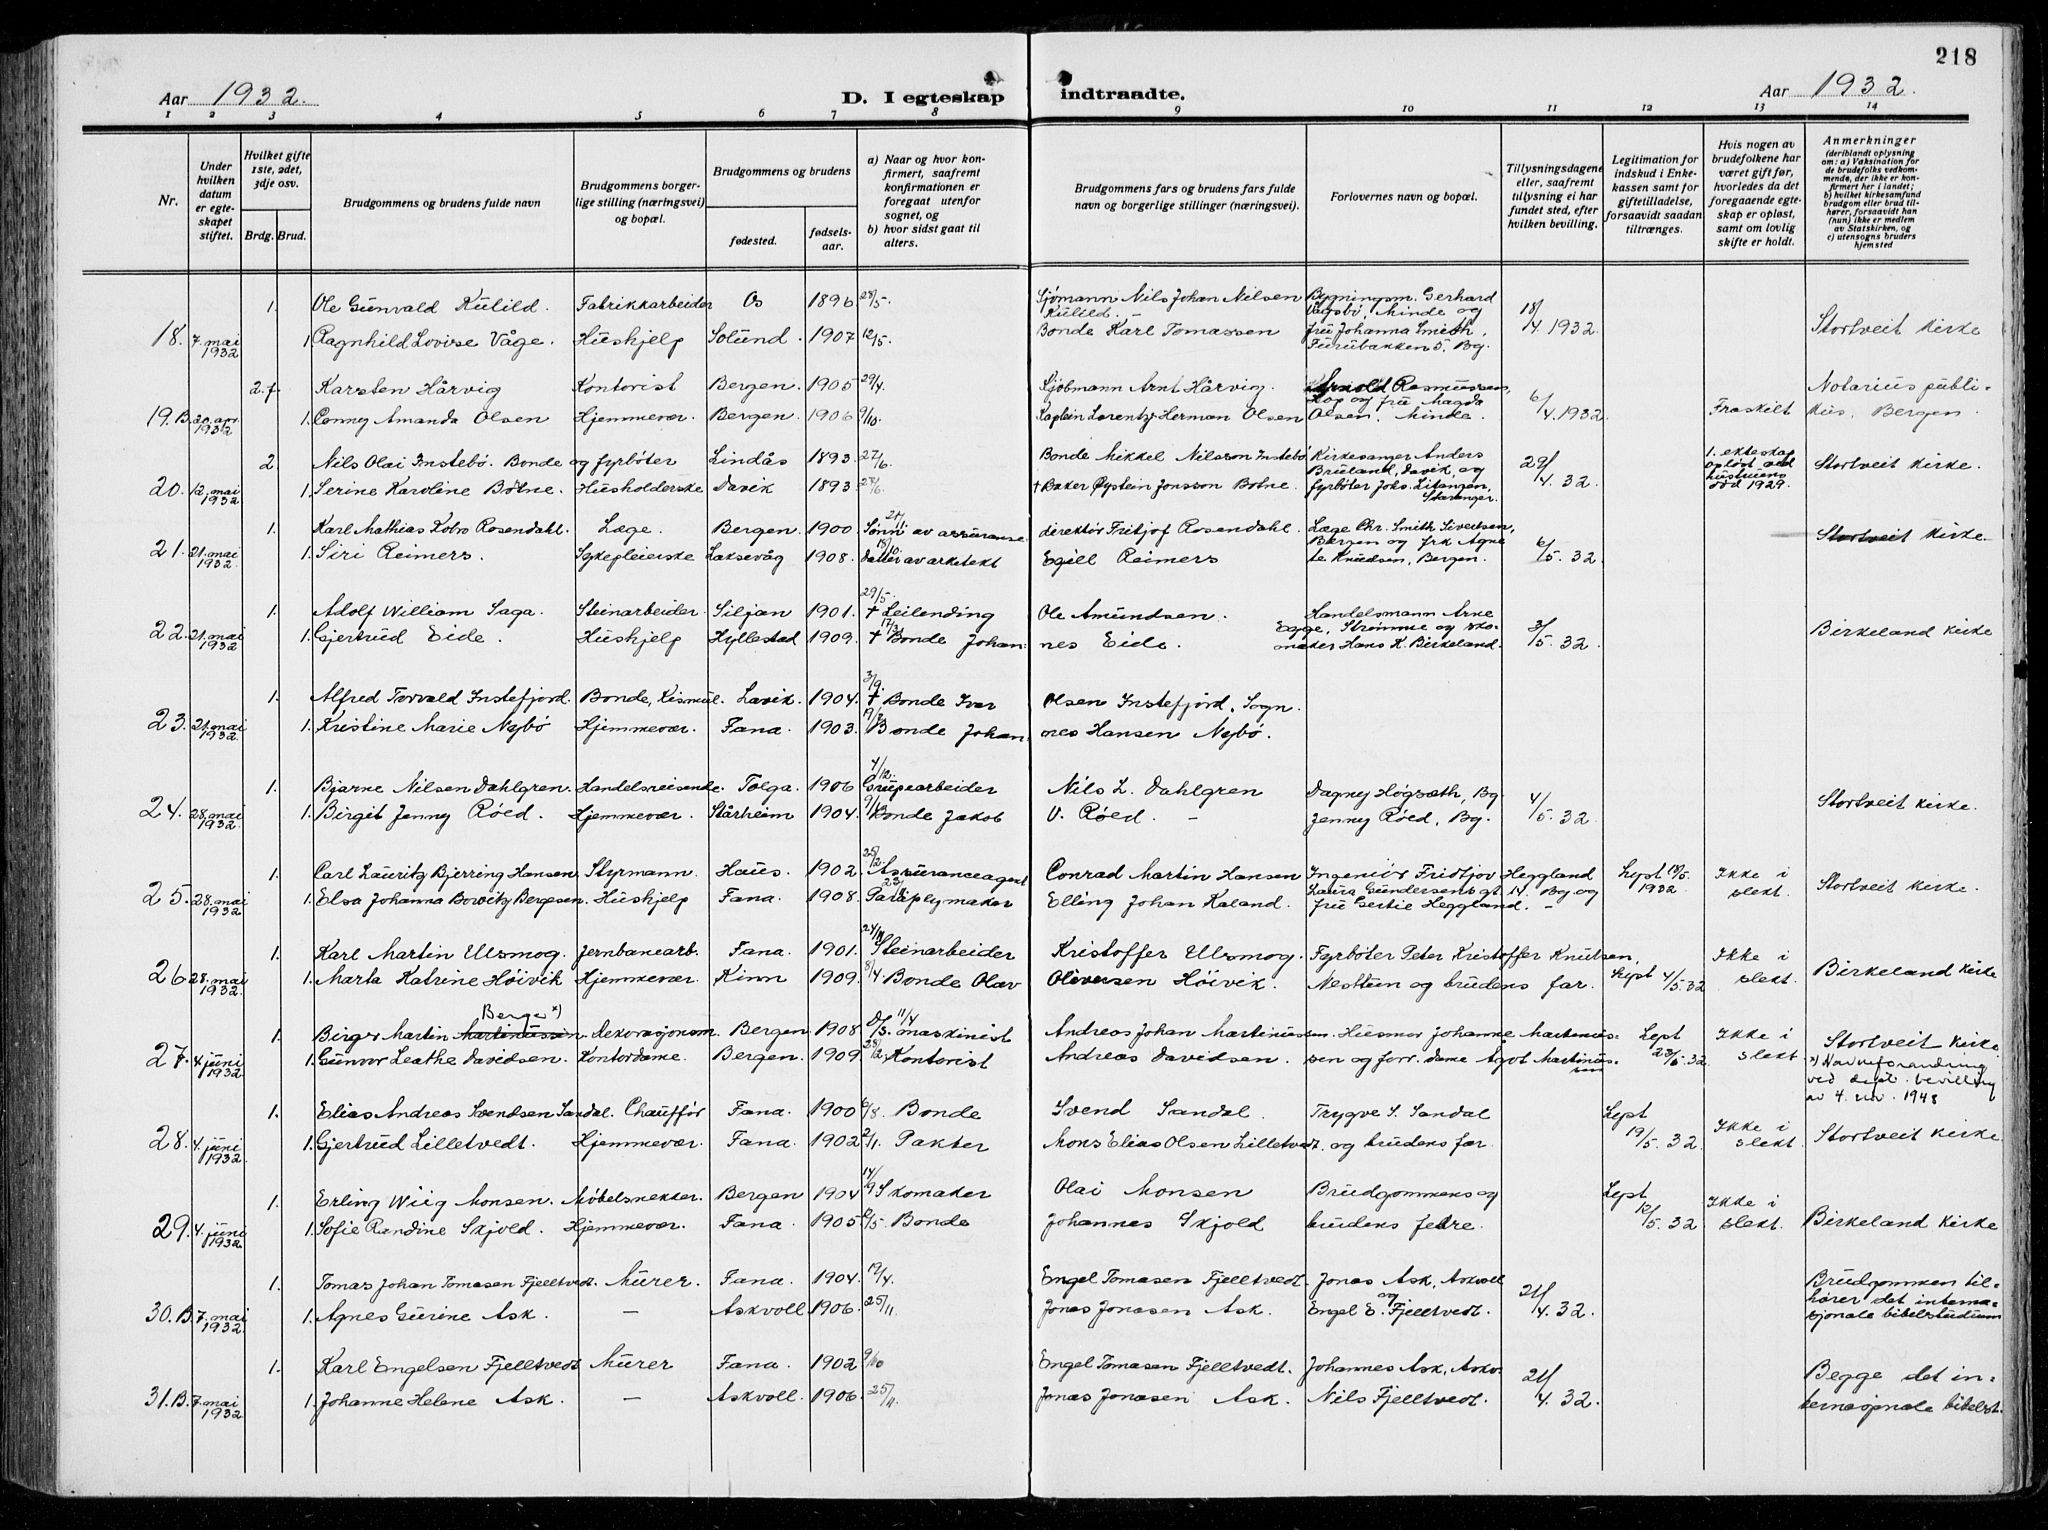 218
Aar 1932.
D. I egteskap indtraadte.
Aar 1932.
1 2 3 4 5 6 7 8 9 10 11 12 13 14
Nr.
Under hvilken datum er egte-skapet stiftet.
Hvilket gifte 1ste, 2det, 3dje osv.
Brdg. Brud.
Brudgommens og brudens fulde navn
Brudgommens borger-lige stilling (næringsvei) og bopæl.
Brudgommens og brudens
fødested.
fødsels-aar.
a) Naar og hvor kon-firmert, saafremt konfirmationen er foregaat utenfor sognet, og
b) hvor sidst gaat til alters.
Brudgommens fars og brudens fars fulde navn og borgerlige stillinger (næringsvei).
Forlovernes navn og bopæl.
Tillysningsdagene eller, saafremt tilysning ei har fundet sted, efter hvilken bevilling.
Legitimation for indskud i Enke-kassen samt for giftetilladelse, forsaavidt saadan tiltrænges.
Hvis nogen av brudefolkene har været gift før, hvorledes da det foregaaende egte-skap er opløst, samt om lovlig skifte er holdt.
Anmerkninger
(deriblandt oplysning om: a) Vaksination for de brudefolks vedkom-mende, der ikke er kon-firmert her i landet; b) hvilket kirkesamfund brudgom eller brud til-hører, forsaavidt han (hun) ikke er medlem av Statskirken, og c) utensogns bruders hjemsted
1. Ole Gunvald Kulild. Fabrikkarbeider Os 1896 28/5. Sjømann Nils Johan Nilsen Kulild. Bygningsm. Gerhard Vågsbø, Minde og
18. 7. mai 1932 1. Ragnhild Lovise Våge. Hushjelp Solund. 1907 12/5. Bonde Karl Tomassen fru Johanna Smith, Furubakken 5, Bg. 18/4. 1932. Stortveit kirke
2. f. Karsten Hårvig Kontorist Bergen. 1905 29/4. Sjømann Arnt Hårvig. Arnold Rasmussen, Kop og fru Magda
19. B. 20. apr. 1932 1. Conny Amanda Olsen Hjemmevær. Bergen. 1906 9/10. Kaptein Lorentz Herman Olsen Olsen, Minde. 6/4. 1932. Fraskilt Notarius publikus, Bergen.
2. Nils Olai Instebø. Bonde og fyrbøter Lindås 1893. 27/6. Bonde Mikkel Nilsson Instebø Kirkesanger Anders Bruland, Davik, og
20. 12. mai 1932 1. Serine Karoline Botne. Husholderske Davik 1893. † Baker Øystein Jonsson Botne. fyrbøter Joks. Litangen, Stavanger. 29/4. 32. 1. ekteskap opløst ved hustruens død 1929. Stortveit kirke.
1. Karl Mathias Kobro Rosendahl. Læge. Bergen. 1900 Sønn av assuranse direktør Fritjof Rosendahl. Læge Chr. Smith Sivertsen, Bergen og frk Agne
21. 21. mai 1932 1. Siri Reimers. Sykepleierske Laksevåg 1908. Datter av arkitekt Egill Reimers te Knudsen, Bergen. 6/5. 32. Stortveit kirke
1. Adolf William Saga. Steinarbeider. Siljan 1901. 29/5. † Leilending Ole Amundsen. Handelsmann Arne
22. 21. mai 1932 1. Gjertrud Eide. Hushjelp Hyllestad 1909. 17/3. † Bonde Johannes Eide. Egge, Strømme og skomaker Hans K. Birkeland. 3/5. 32. Birkeland kirke
1. Alfred Torvald Instefjord. Bonde, Kismul. Lavik. 1904. 3/9. † Bonde Iver Olsen Instefjord, Sogn.
23. 21. mai 1932 1. Kristine Marie Nybø Hjemmevær. Fana. 1903. Bonde Johannes Hansen Nybø.
1. Bjarne Nilsen Dahlgren. Handelsreisende. Tolga. 1906 4/12. Grubearbeider Nils L. Dahlgren Dagny Høgsæth, Bg.
24. 28. mai 1932. 1. Birgit Jenny Røed. Hjemmevær. Stårheim 1904. Bonde Jakob V. Røed. Jenny Røed, Bg. 4/5. 32. Stortveit kirke.
1. Carl Lauritz Bjerring Hansen. Styrmann. Haus. 1902. 25/2. Assuranceagent Conrad Martin Hansen Ingeniør Fridtjov Heggland Lept 13/5. 1932 Ikke i slekt.
25. 28. mai 1932 1. Elsa Johanna Bowitz Bergesen. Hushjelp Fana. 1908. Paraplymaker Elling Johan Kaland. Laura Gundersens gt. 14, Bg og fru Gertie Heggland. Stortveit kirke.
1. Karl Martin Ulsmog. Jernbanearb. Fana. 1901. Steinarbeider Kristoffer Ulsmog. Fyrbøter Peter Kristoffer Knutsen, Ikke i slekt.
26. 28. mai 1932. 1. Marta Katrine Høivik Hjemmevær. Kinn 1909. 8/4. Bonde Olav Oliversen Høivik. Nesttun og brudens far. Lept 4/5. 32 Birkeland kirke
Berge x)
1. Birger Martin Martinussen. Dekorasjonsm. Bergen. 1908 Maskinist Andreas Johan Martinussen. Husmor Johanne Martinus- Lept Ikke i
27. 4. juni 1932. 1. Gunvor Leathe Davidsen. Kontordame. Bergen. 1909. Kontorist Andreas Davidsen. sen og forr. dame Agot Martinussen 23/5. 32 slekt. Stortveit kirke.
x) Navneforandring ved dept. bevilling av 4. nov. 1948
1. Elias Andreas Svendsen Sandal. Chauffør Fana. 1900 6/8. Bonde Svend Sandal. Trygve S. Sandal Lept
28. 4. juni 1932. 1. Gjertrud Lilletvedt. Hjemmevær. Fana. 1902 2/11. Pakter Mons Elias Olsen Lilletvedt. og brudens far 19/5. 32 Ikke i slekt. Stortveit kirke
1. Erling Wiig Monsen. Møbelsnekker. Bergen 1904 14/9 Skomaker Olai Monsen Brudgommens og Lept
29. 4. juni 1932. 1. Sofie Randine Skjold. Hjemmevær. Fana. 1905 Bonde Johannes Skjold brudens fedre. 12/5. 32 Ikke i slekt. Birkeland kirke
1. Tomas Johan Tomasen Fjelltvedt. Murer. Fana. 1904. 19/4. Engel Tomasen Fjelltvedt. Jonas Ask, Askvoll
30. B. 7. mai 1932. 1. Agnes Gurine Ask. – Askvoll 1906. 25/11. Jonas Jonasen Ask. og Engel E. Fjelltvedt. 21/4. 32. Brudgommen tilhører det internasjonale bibelstudium
1. Karl Engelsen Fjelltvedt Murer Fana. 1902 9/10 Engel Tomasen Fjelltvedt. Johannes Ask, Askv.
31. B. 7. mai 1932 1. Johanne Helene Ask. – Askvoll. 1906. 25/11. Jonas Jonasen Ask. Nils Fjelltvedt. 21/4. 32. Begge det internasjonale bibelst.